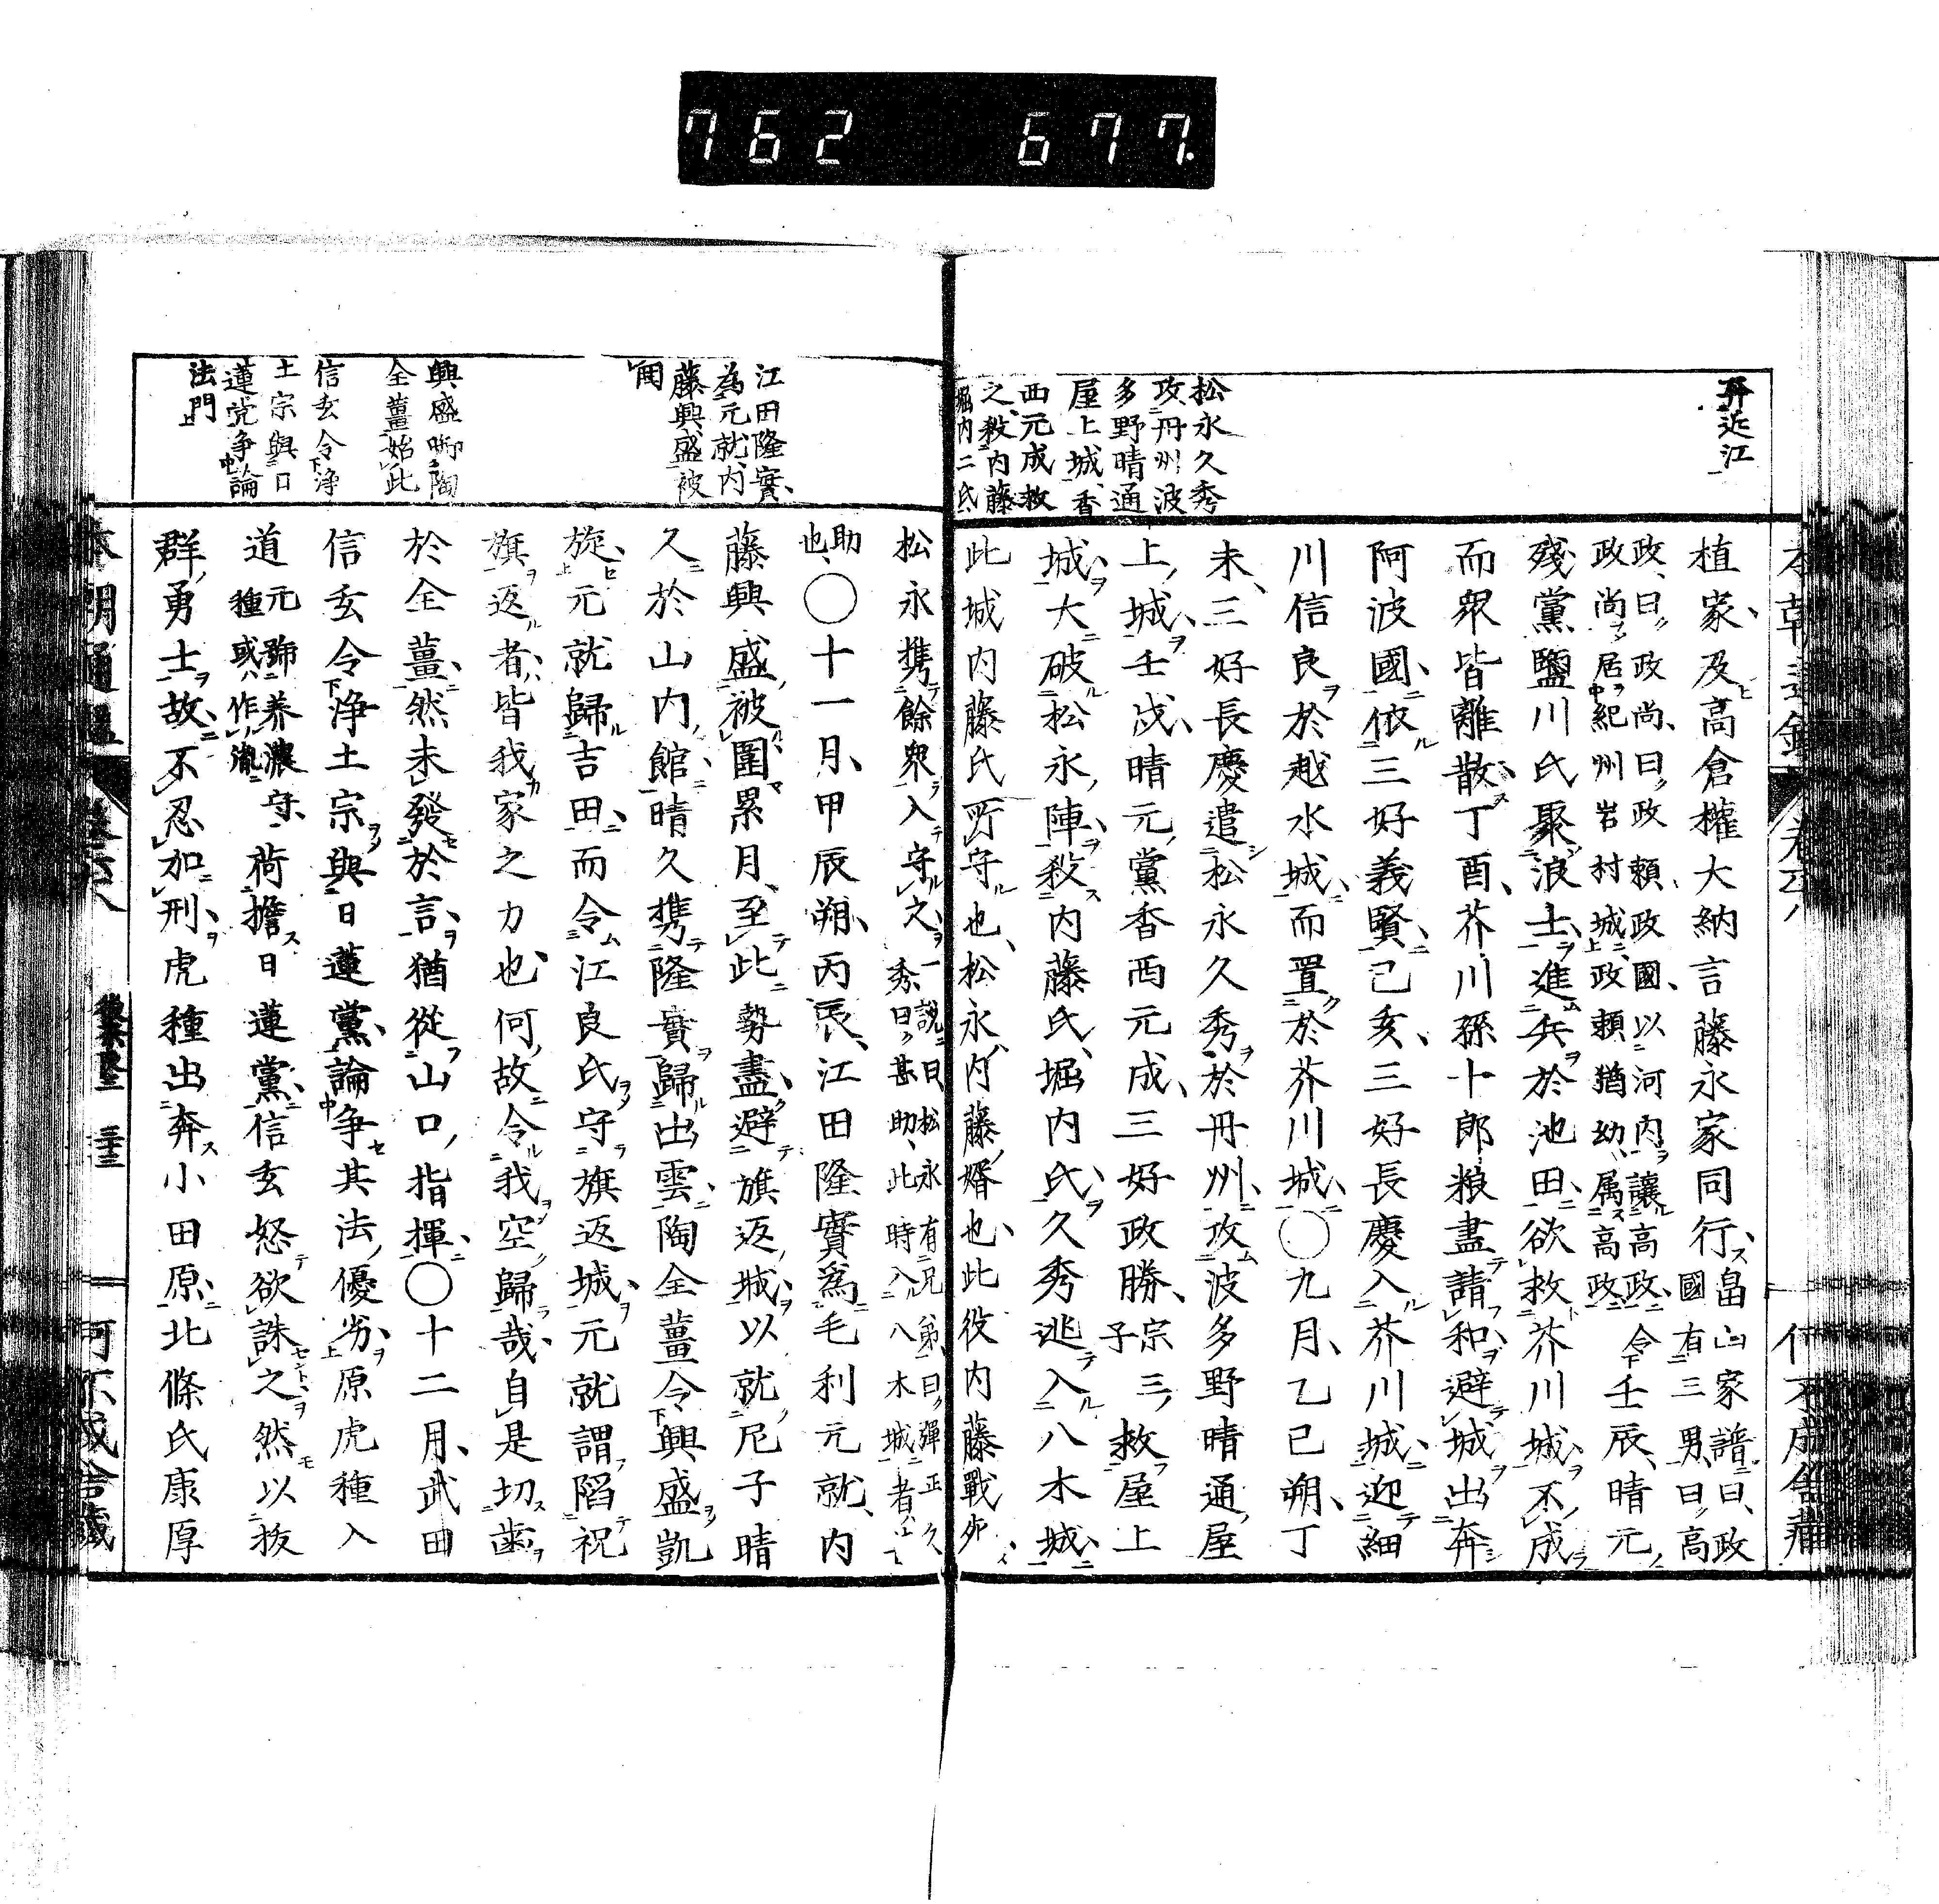 762 677.
奔近江
松永久秀
攻丹州波
多野晴通
屋上城香
西元成救
之殺内藤
堀内二氏
植家及高倉權大納言藤永家同行
畠山家譜曰政
國有三男曰高
政曰政尚曰政頼政國以河内讓高政令
政尚居紀州岩村城政頼猶幼属高政
壬辰晴元
殘黨鹽川氏聚浪士進兵於池田欲救芥川城不成
而衆皆離散丁酉芥川孫十郎粮盡請和避城出奔
阿波國依三好義賢己亥三好長慶入芥川城迎細
川信良於越水城而置於芥川城〇九月乙巳朔丁
未三好長慶遣松永久秀於丹州攻波多野晴通屋
上城壬戌晴元黨香西元成三好政勝宗三子救屋上
城大破松永陣殺内藤氏堀内氏久秀逃入八木城
此城内藤氏所守也松永内藤婿也此役内藤戰死
松永携餘衆入守之
一説曰松永有兄弟曰彈正久
秀曰甚助此時入八木城者
助
也
〇十一月甲辰朔丙辰江田隆實爲毛利元就内
藤興盛被圍累月至此勢盡避旗返城以就尼子晴
久於山内館晴久携隆實歸出雲陶全薑令興盛凱
旋元就歸吉田而令江良氏守旗返城元就謂陷祝
旗返者皆我家之力也何故令我空歸哉自是切齒
於全薑然未發於言猶從山口指揮〇十二月武田
信玄令浄土宗與日蓮黨論爭其法優劣原虎種入
道
元號美濃守
種或作胤
荷擔日蓮黨信玄怒欲誅之然以拔
群勇士故不忍加刑虎種出奔小田原北條氏康厚
江田隆實
為元就内
藤興盛被
圍
興盛啣陶
全薑始此
信玄令浄
土宗與日
蓮党争論
法門
本朝通鑑
三十三